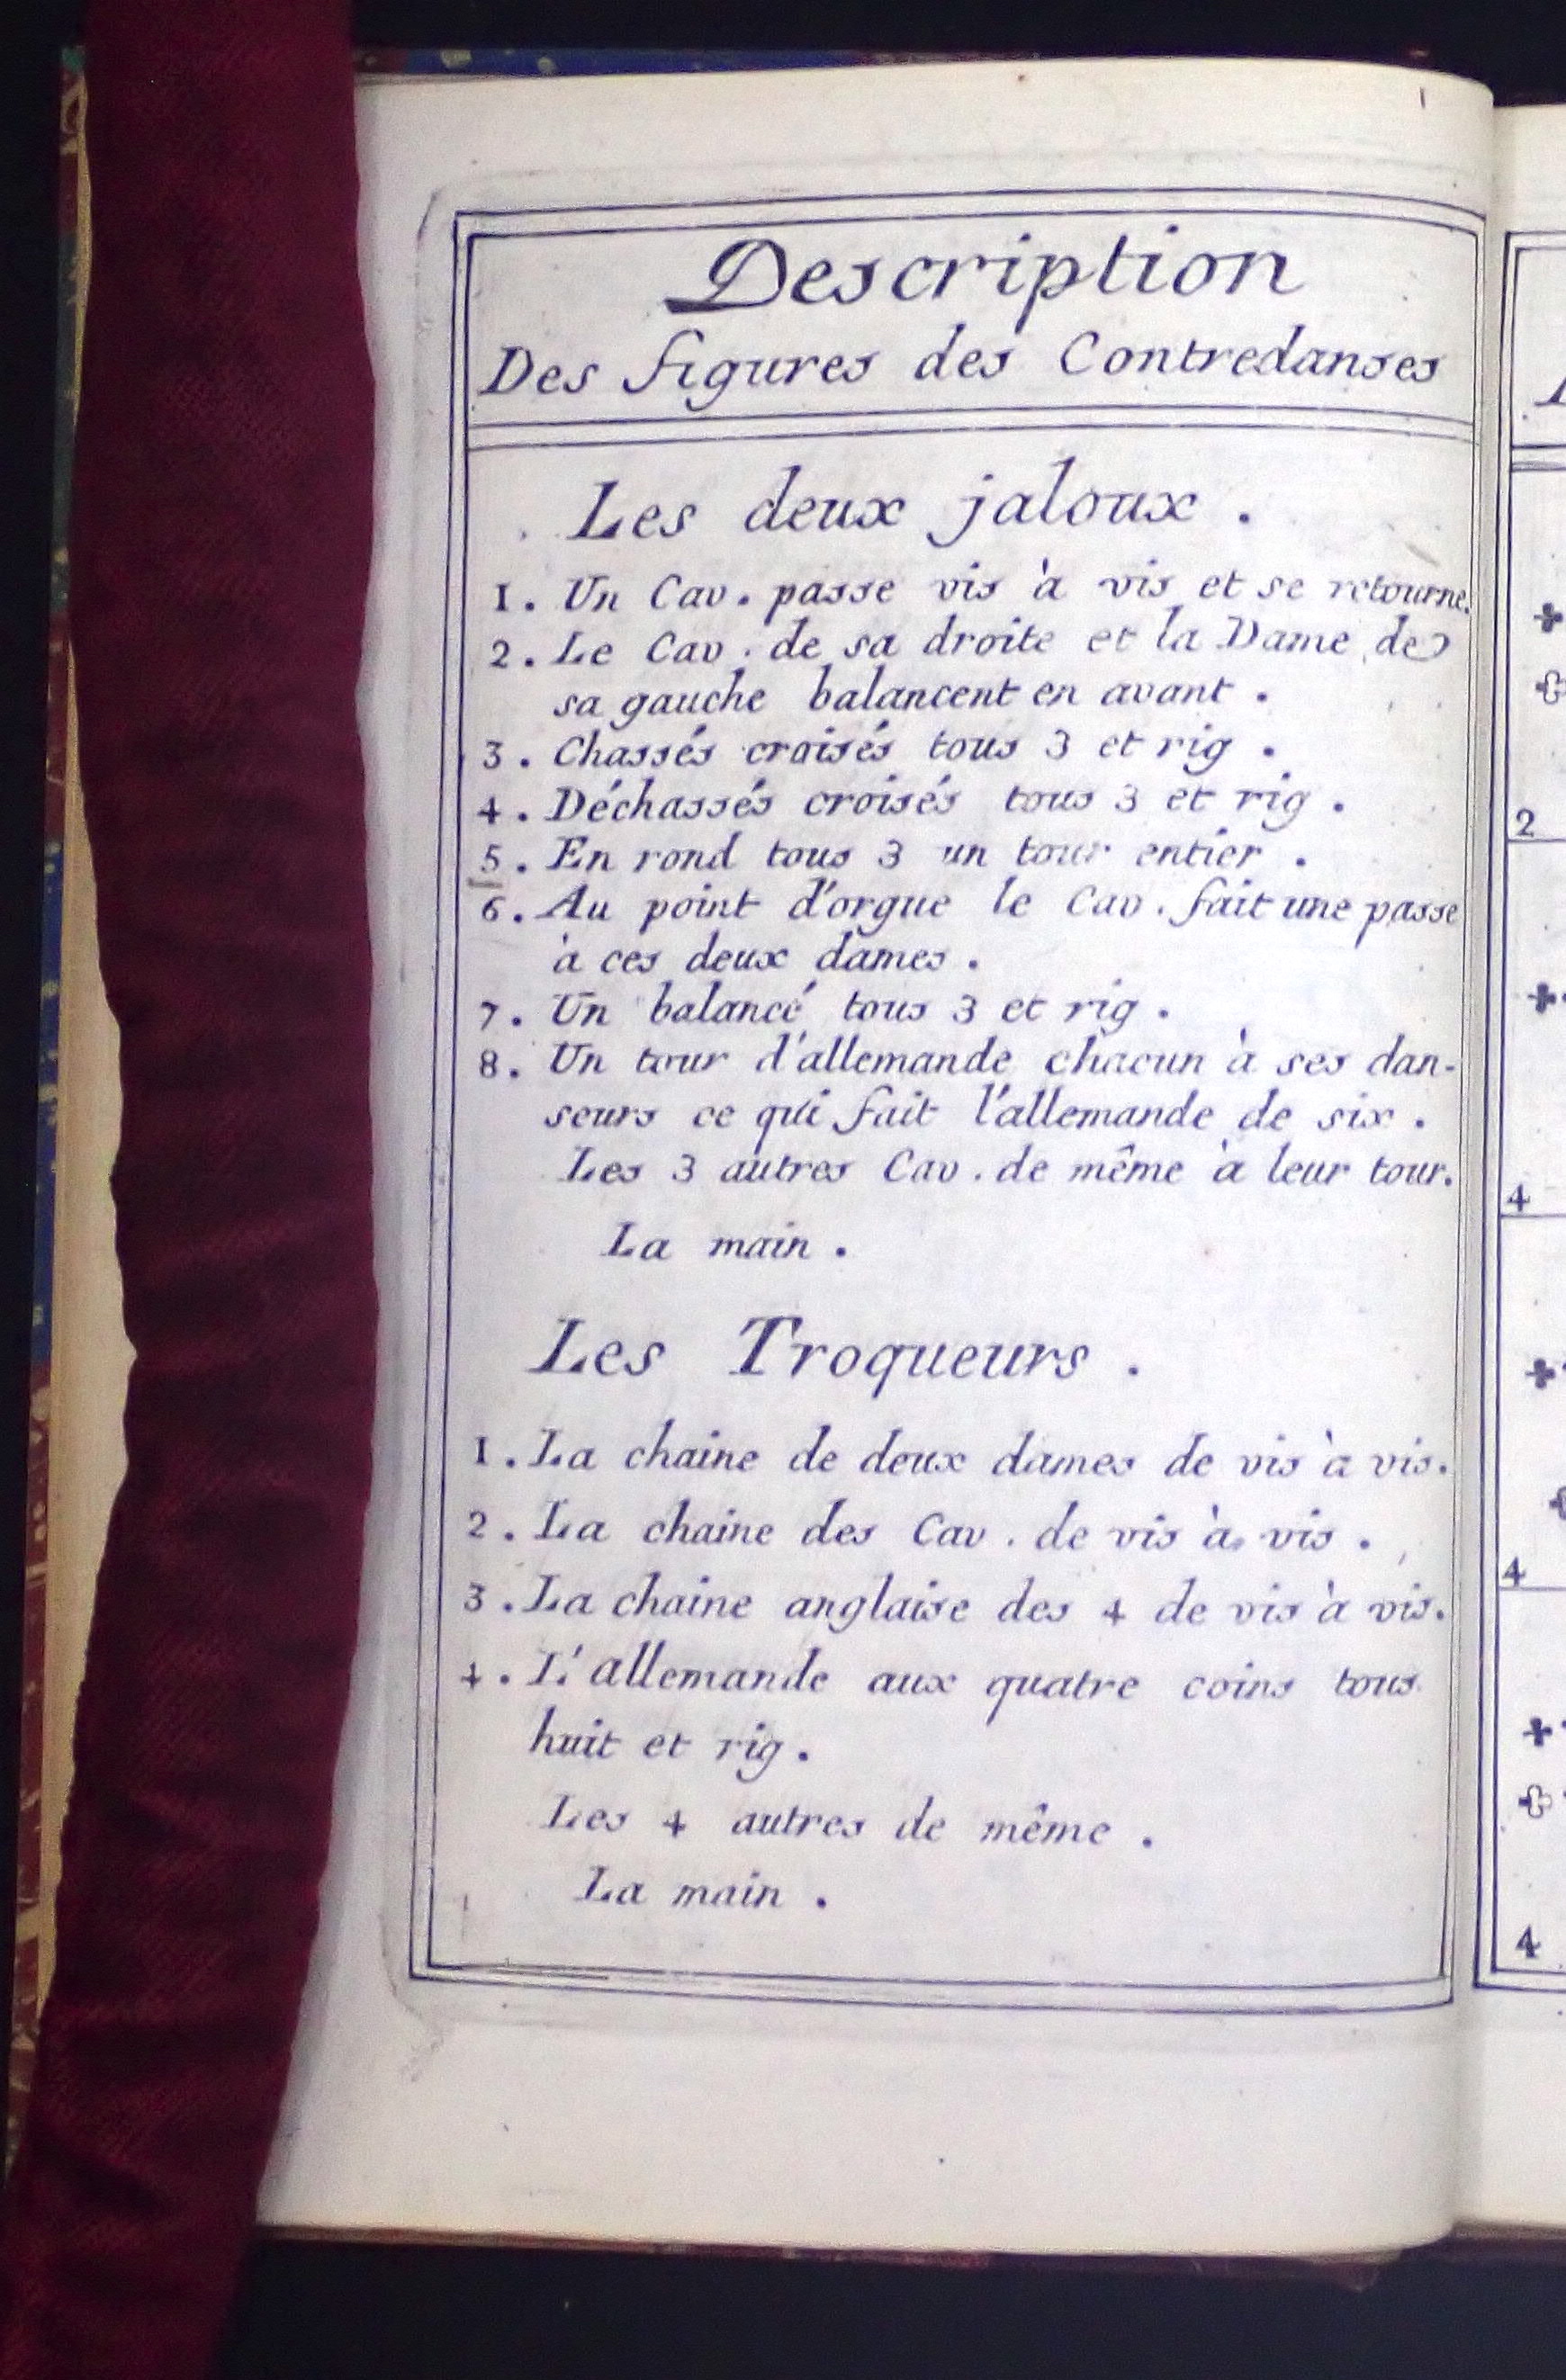 1
Description
Des figures des Contredanses
Les deux jaloux .
1. Un Cav. passe vis à vis et se retourne.
2. Le Cav. de sa droite et la Dame de
sa gauche balancent en avant .
3. Chassés croisés tous 3 et rig .
4. Déchassés croisés tous 3 et rig .
5. En rond tous 3 un tour entier .
6. Au point d'orgue le Cav. fait une passe
à ces deux dames .
7. Un balancé tous 3 et rig .
8. Un tour d'allemande chacun à ses dan-
seurs ce qui fait l'allemande de six .
Les 3 autres Cav. de même à leur tour.
La main .
Les Troqueurs .
1. La chaine de deux dames de vis à vis.
2. La chaine des Cav. de vis à vis .
3. La chaine anglaise des 4 de vis à vis.
4. L'allemande aux quatre coins tous
huit et rig .
Les 4 autres de même .
La main .
2
4
4
4